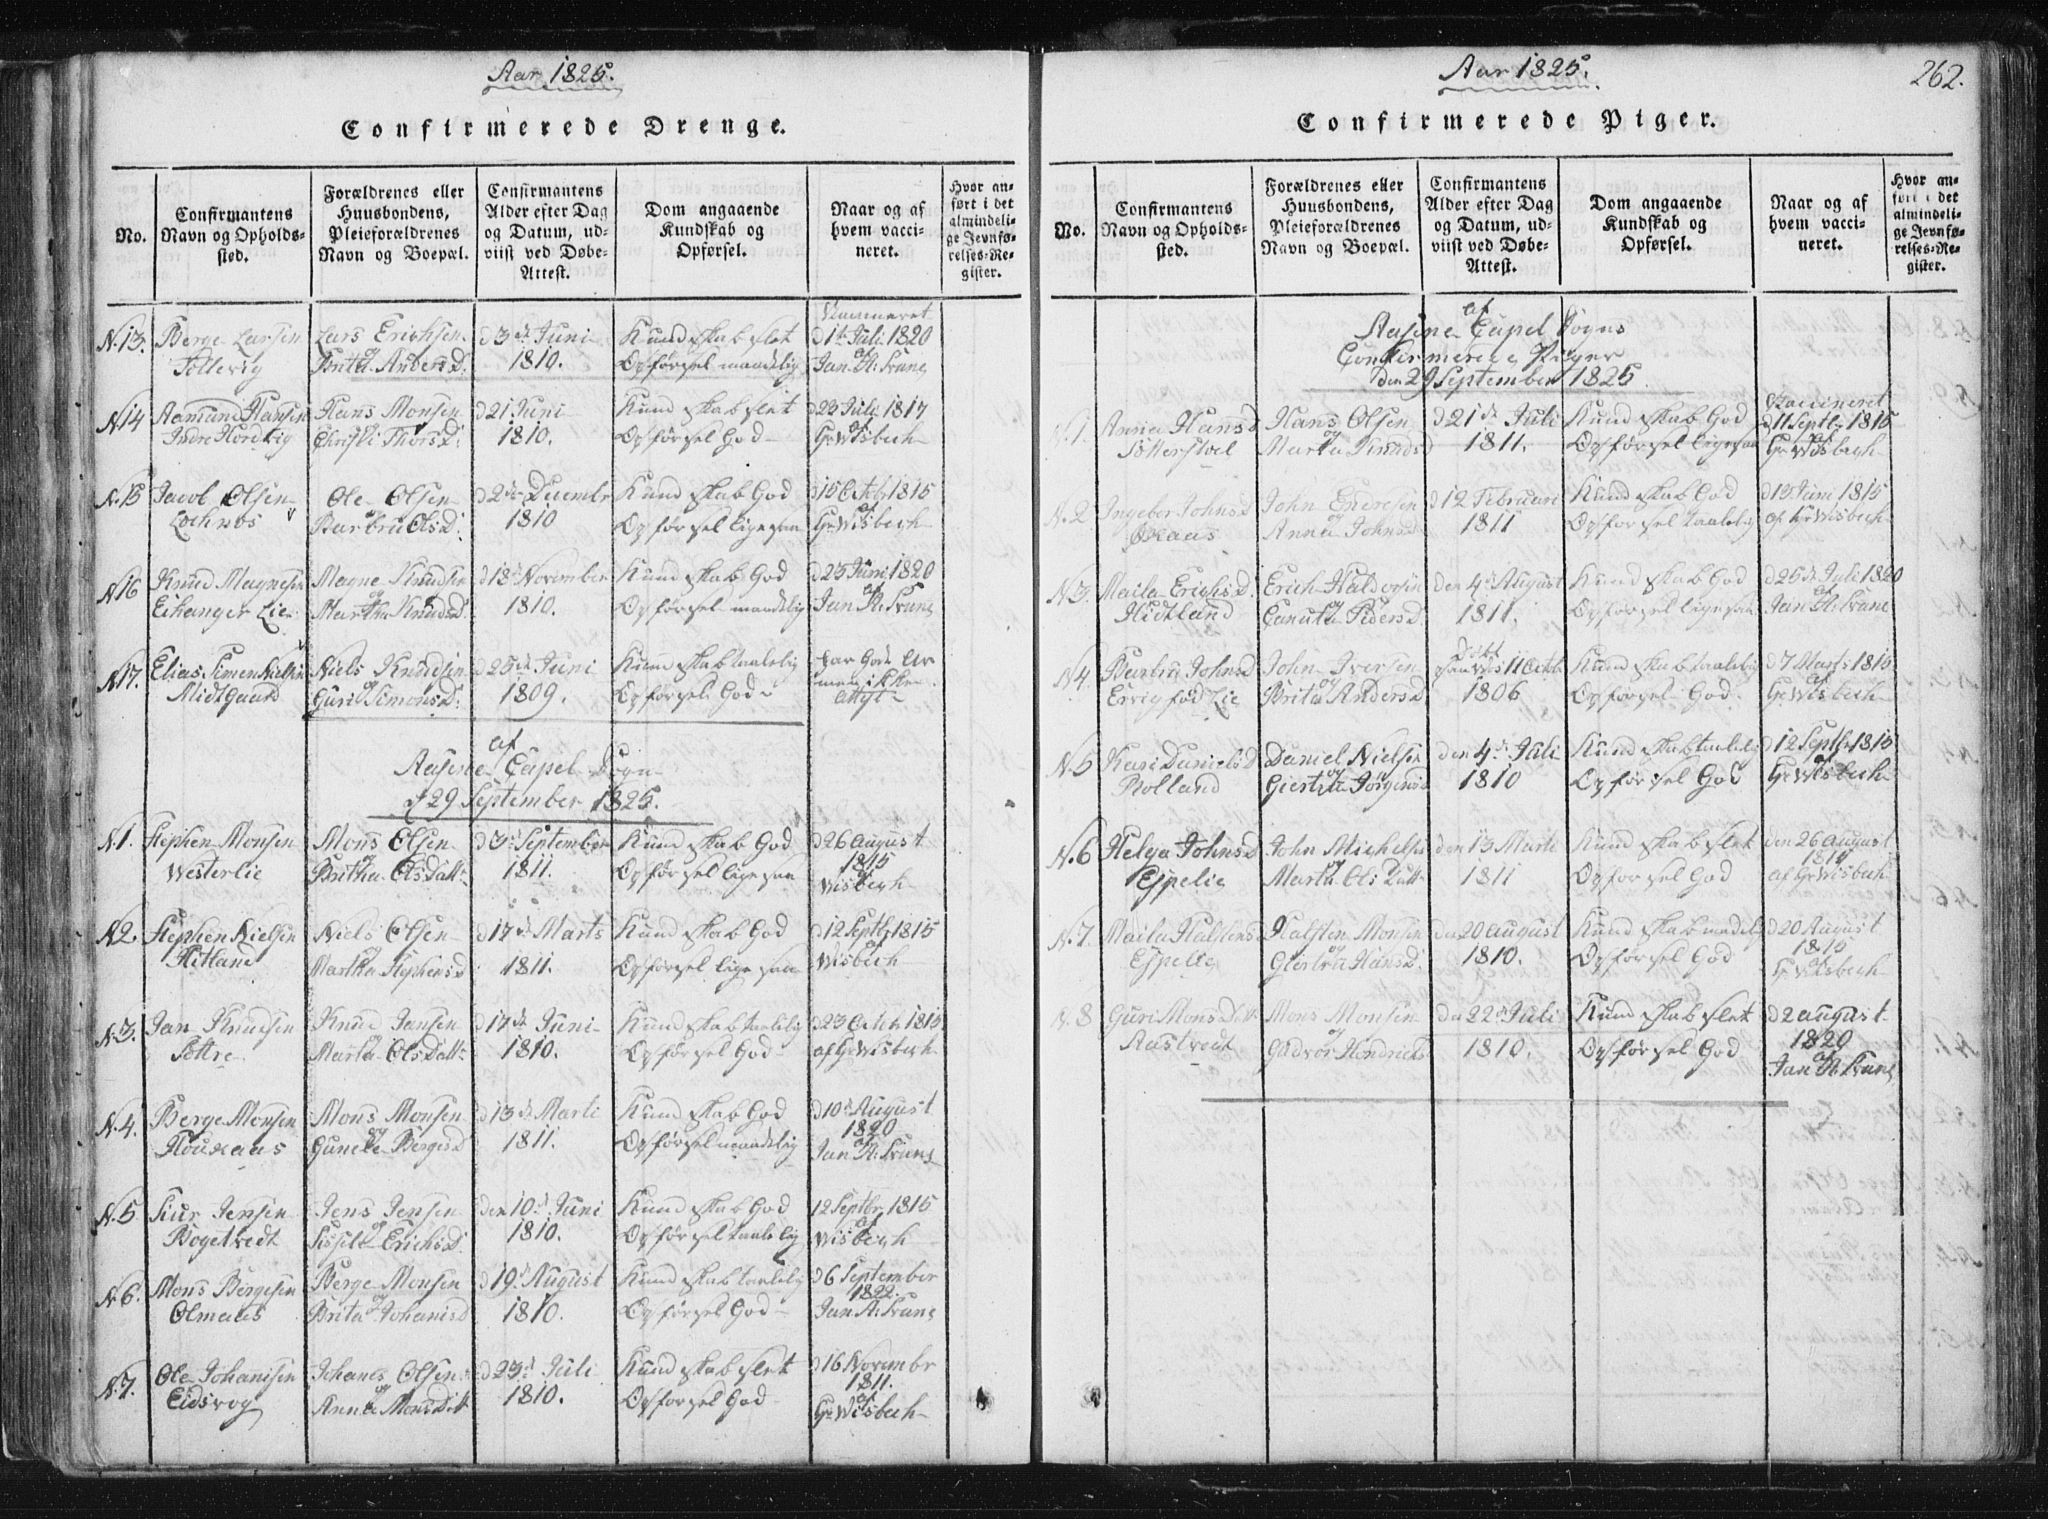 Aar 1825.
Confirmerede Drenge.
No.
Confirmantens
Navn og Opholds-
sted.
Forældrenes eller
Huusbondens,
Pleieforældrenes
Navn og Boepæl.
Confirmantens
Alder efter Dag
og Datum, ud-
viist ved Døbe-
Attest.
Dom angaaende
Kundskab og
Opførsel.
Naar og af
hvem vacci-
neret.
Hvor an-
ført i det
almindeli-
ge Jevnfø-
relses-Re-
gister.
N.13.
Berge Larsen
Lars Erichsen
og
Brita AndersD.
d 3de Juni
1810.
Kundskab slet
Opførsel maadelig
d 1te Juli 1820
Jan A. Svane
N.14
Aamund Hansen
Indre Hordvig
Hans Monsen
Christi ThorsD.
d 21 Juni
1810.
Kundskab slet
Opførsel God
d 23 Juli 1817
af
Gr Wisbech
N.15
Jacob Olsen
Ole Olsen
og
Barbru OlsD.
d 2de Decembr
1810
Kundskab God
Opførsel ligesaa
d 15 Octbr 1815
af
Gr Wisbech
N.16
Knud Magnesen
Eikanger Lie
Magne Knudsen
og
Martha KnudsD
d 18de November
1810.
Kundskab God
Opførsel maadelig
d 23 Juni 1820
af
Jan A. Svane
N.17.
Elias Simen Nielsen
Midtgaard
Niels Knudsen
og
Guri SimonsD.
d 25de Juni
1809.
Kundskab taalelig
Opførsel God
af
Aasene Capel Sogn
d 29 September 1825.
N.1.
Stephen Monsen
Westerlie
Mons Olsen
og
Britha OlsDattr
d 3de September
1811.
Kundskab God
Opførsel ligesaa
d 26 August
1815
af
Wisbech
N.2.
Stephen Nielsen
Hitland
Niels Olsen
og
Martha StephensD
d 17de Marts
1811.
Kundskab God
Opførsel ligesaa
d 12 Septbr 1815
af
Wisbech
N.3.
Jan Knudsen
Knud Jansen
og
Marta OlsDattr
d 17de Juni
1810.
Kundskab taalelig
Opførsel God
d 23 Octbr 1815
af Gr Wisbech
N.4.
Berge Monsen
Mons Monsen
og
Gunele BergesD
d 13de Marti
1811.
Kundskab God
Opførsel maadelig
d 10de August
1820
af
Jan A. Svane
N.5
Siur Jensen
Jens Jensen
og
Sissele ErichsD.
den 10de Juni
1810.
Kundskab God
Opførsel taalelig
12 Septbr 1815
af
Wisbech
N.6.
Mons Bergesen
Olmaas
Berge Monsen
og
Brita JohanisD
d 19de August
1810.
Kundskab taalelig
Opførsel God
d 6 September
1822.
Jan A. Svane
N.7.
Ole Johanisen
Eidsvog
Johanes Olsen
og
Anna MonsDatt
d 23de Juli
1810.
Kundskab slet
Opførsel God
d 16 Novembr
1811.
af
Gr Wisbech
Aar 1825.
262.
Confirmerede Piger.
No.
Confirmantens
Navn og Opholds-
sted.
Forældrenes eller
Huusbondens,
Pleieforældrenes
Navn og Boepæl.
Confirmantens
Alder efter Dag
og Datum, ud-
viist ved Døbe-
Attest.
Dom angaaende
Kundskab og
Opførsel.
Naar og af
hvem vacci-
neret.
Hvor an-
ført i det
almindeli-
ge Jevnfø-
relses-Re-
gister.
af
Aasene Capel Sogns
Confirmerede Piger
den 29 September 1825.
N.1.
Anna HansD
Hans Olsen
og
Marta
d 21de Juli
1811.
Kundskab God
Opførsel ligesaa
Vaccineret
d 11 Septbr 1815
af
Gr Wisbech
N.2
Ingeber JohnsD
John Endresen
og
Anna JohnsD
d 12 Februari
1811
Kundskab God
Opførsel taalelig
d 13 Juni 1815
af Gr Wisbech
N.3.
Maila ErichsD.
Hidtland
Erich Haldorsen
og
Canuta PedersD
den 4de August
1811.
Kundskab God
Opførsel ligesaa
d 25de Juli 1820
af
Jan A. Svane
N.4.
Barbru JohnsD
Ervig fød Lie
John Iversen
og
Brita AndersD
Døbt
1806
Kundskab taalelig
Opførsel God.
d 7 Marts 1815
af
Gr Wisbech
N.5
Kari DanielsD
Rolland
Daniel Nielsen
og
Giertru JørgensD
den 4de Juli
1810
Kundskab taalelig
Opførsel God
d 12 Septbr 1815
af
Gr Wisbech
N.6
Helga JohnsD
Espelie
John Michelsen
og
Marta OlsDattr
den 13 Marti
1811
Kundskab slet
Opførsel God
den 26 August
af Gr Wisbech
N.7.
Maila HalstensD
Espelie
Halsten Monsen
og
Giertru HansD.
den 20 August
1810.
Kundskab maadelig
Opførsel God
d 20 August
1815
af
Gr Wisbech
N.8
Guri MonsDatr
Austvedt
Mons Monsen
og
Gudvor Hendricks
den 22de Juli
1810.
Kundskab slet
Opførsel God
d 2 August
1820
af
Jan A. Svane